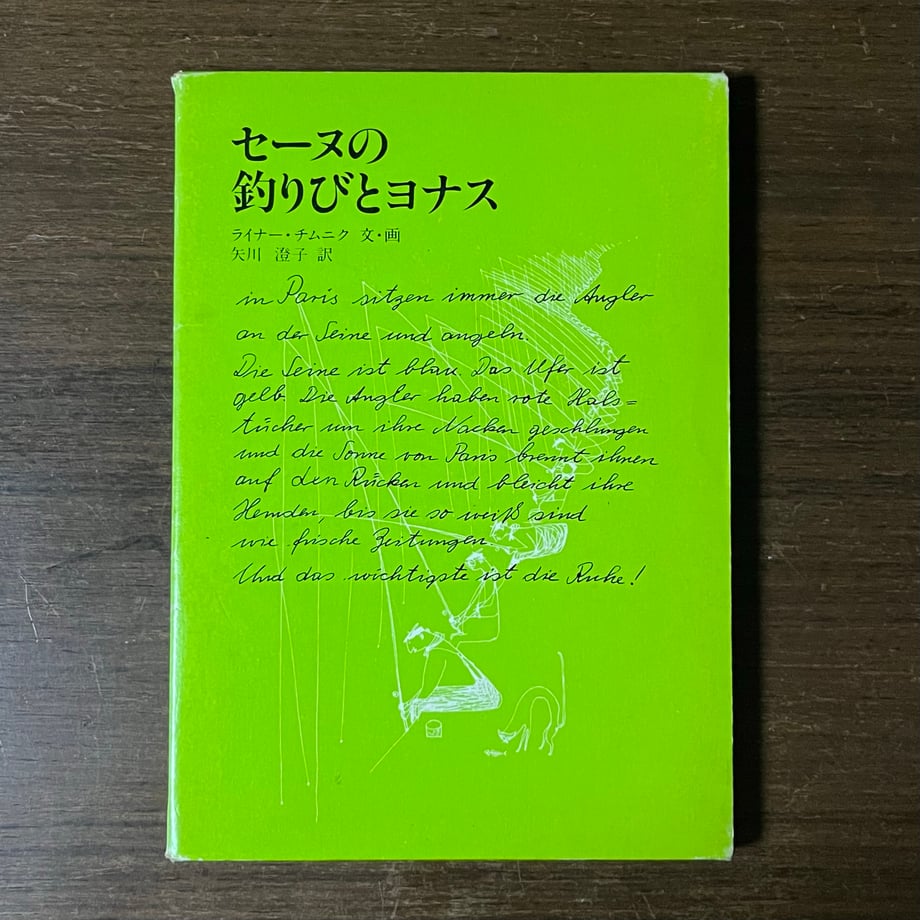 セーヌの
釣りびとヨナス
ライナー・チムニク 文・画
矢川 澄子 訳
in Paris sitzen immer die Angler
an der Seine und angeln.
Die Seine ist blau. Das Ufer ist
gelb. Die Angler haben rote Hals=
tücher um ihre Nacken geschlungen
und die Sonne von Paris brennt ihnen
auf den Rücken und bleicht ihre
Hemden, bis sie so weiß sind
wie frische Zeitungen.
Und das wichtigste ist die Ruhe!